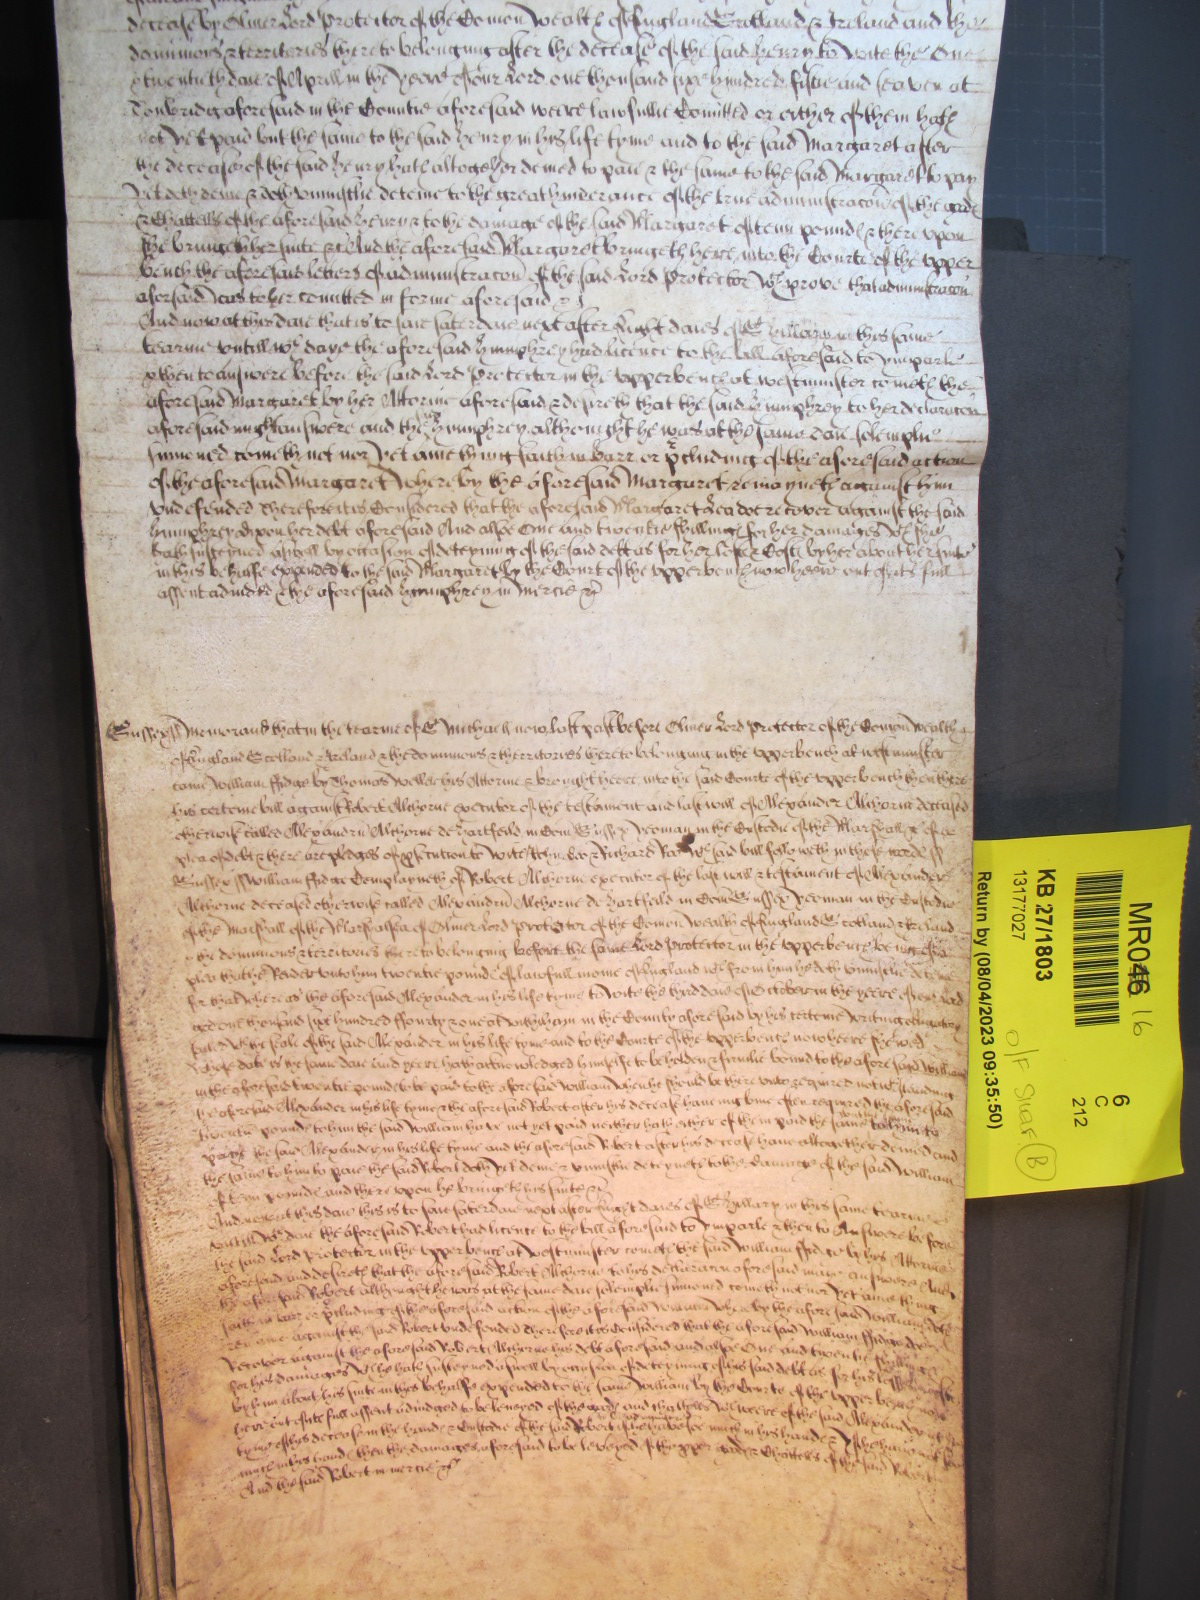 decease by Oliver Lord Protector of the Comon Wealth of England Scotland & Ireland and the
dominions & territories thereto belonging after the decease of the said Henry to Witt the One
& twentieth daie of Aprill in the yeare of our Lord one thousand six hundred fiftie and seaven at
Tonbridg aforesaid in the Countie aforesaid weere lawfullie Comitted or either of them hath
not yet paid but the same to the said Henry in his life tyme and to the said Margaret after
the decease of the said Henry hath altogether denied to paie & the same to the said Margaret to pay
yet doth denie & doth uniustlie deteine to the great hinderance of the true administracon of the goods
& Chattells of the aforesaid Henry & to the damage of the said Margaret of tenn pounds & there upon
she bringeth her suite &c And the aforesaid Margaret bringeth heere into the Courte of the upper
bench the aforesaid letters of administracon of the said Lord Protector wch prove that administracon
aforesaid was to her comitted in forme aforesaid &c
And now at this daie that is to saie Saterdaie next after Eight daies of St Hillary in this same
tearme untill wch daye the aforesaid Humphrey had licence to the bill aforesaid to Imparle
& then to answere before the said Lord Protector in the upper bench at westminster cometh the
aforesaid Margaret by her Attornie aforesaid & desireth that the said Humphrey to her declaracon
aforesaid might answere and the said Humphrey although he was at the same daie solemplie
sumoned cometh not nor yet anie thing saith in barr or pcluding of the aforesaid action
of the aforesaid Margaret whereby the aforesaid Margaret remayneth against him
undefended Therefore it is Considered that the aforesaid Margaret doe recover against the said
Humphrey upon her debt aforesaid And allsoe One and twentie shillings for her damages wch she
hath susteined aswell by occasion of deteyning of the said debt as for her losse & Costs by her about her suite
in this behalfe expended to the said Margaret by the Court of the upper bench now heere out of its full
assent adiudged & the aforesaid Humphrey in mercie &c
Sussex ss Memorand that in the tearme of St Michaell now last past before Oliver Lord Protector of the Comon Wealth
of England Scotland & Ireland & the dominions & territories thereto belonging in the upper bench at westminster
came William ffidge by Thomas Weller his Attornie & brought heere into the said Courte of the upper bench then there
his certeine bill against Robert Alchorne executor of the testament and last will of Alexander Alchorne deceased
otherwise called Alexandru Alchorne de Hartfeild in Com Sussex yeoman in the Custodie of the Marshall &c of a
plea of debt & there are pledges of psecution to witt John Doe & Richard Roe wch said bill followeth in theise words ss
Sussex ss William ffidge Complayneth of Robert Alchorne executor of the last will & testament of Alexander
Alchorne deceased otherwise called Alexandru Alchorne de Hartfeild in Com Sussex yeoman in the Custodie
of the Marshall of the Marshalsea of Oliver Lord Protector of the Comon Wealth of England Scotland & Ireland
& the dominions & territories thereto belonging before the same Lord Protector in the upper bench being of a
plea that he Render unto him twentie pounds of lawfull monie of England wch from him he doth uniustlie deteine
for that whereas the aforesaid Alexander in his life tyme to witt the third daie of October in the yeere of our Lord
god one thousand six hundred ffourty & one at Withyham in the County aforesaid by his certeine writing obligatory
sealed wth the seale of the said Alexander in his life tyme and to the Courte of the upper bench now heere shewed
whose date is the same daie and yeere hath acknowledged himselfe to be holden & firmlie bound to the aforesaid William
in the aforesaid twentie pounds to be paid to the aforesaid William when he should be there unto required notwthstanding
the aforesaid Alexander in his life tyme & the aforesaid Robert after his decease haveing bine often required the aforesaid
twentie pounds to him the said William have not yet paid neither hath either of them paid the same to him to
paye the said Alexander in his life tyme and the aforesaid Robert after his decease have alltogether denied and
the same to him to paie the said Robert doth yet denie & uniustlie deteyneth to the damage of the said William
of tenn pounds and there upon he bringeth his suite &c
And now at this daie that is to saie Saterdaie next after Eight daies of St Hillary in this same tearme
untill wch daie the aforesaid Robert had licence to the bill aforesaid to Imparle & then to Answere before
the said Lord Protector in the upper bench at westminster cometh the said William ffidge by his Attornie
aforesaid and desireth that the aforesaid Robert Alchorne to his declaracon aforesaid maie answere And
the aforesaid Robert although he was at the same daie solemplie sumoned cometh not nor yet anie thing
saith in barr or pcluding of the aforesaid action of the aforesaid William whereby the aforesaid William doth
remaine against the said Robert undefended Therefore it is Considered that the aforesaid William ffidge doe
Recover against the aforesaid Robert Alchorne his debt aforesaid and allsoe One and twentie shillings
for his damages wch he hath susteyned aswell by occasion of deteyning of his said debt as for his losse & Costs
by him about his suite in this behalfe expended to the same William by the Courte of the upper bench now
heere out of its full assent adiudged to be leveyed of the goods and Chattells wch weere of the said Alexander
tyme of his decease in the hands & Custodie of the said Robert if he have soe much in his hands & if he have not soe
much in his hands then the damages aforesaid to be leveyed of the pper goods & Chattells of the said Robert
And the said Robert in mercie &c
MR046 16
KB 27/1803
13177027
Return by (08/04/2023 09:35:50)
6
C
212